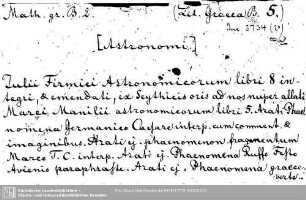 Math. gr. B. 2. (Lit. Graeca B. 5.
Inc 2734 (2)
[Astronomi.]
Julii Firmici Astronomicorum libri 8 in-
tegri, & emendati, ex Scythicis oris ad nos nuper allati
Marci Manilii astronomicorum libri 5. Arati Phae-
nomena Germanico Caesare interp. cum comment. &
imaginibus. Arati ej. phaenomenon fragmentum
Marco T. C. interp. Arati ej. Phaenomena Ruffo Festo
Avienio paraphraste. Arati ej. Phaenomena graece.
verte